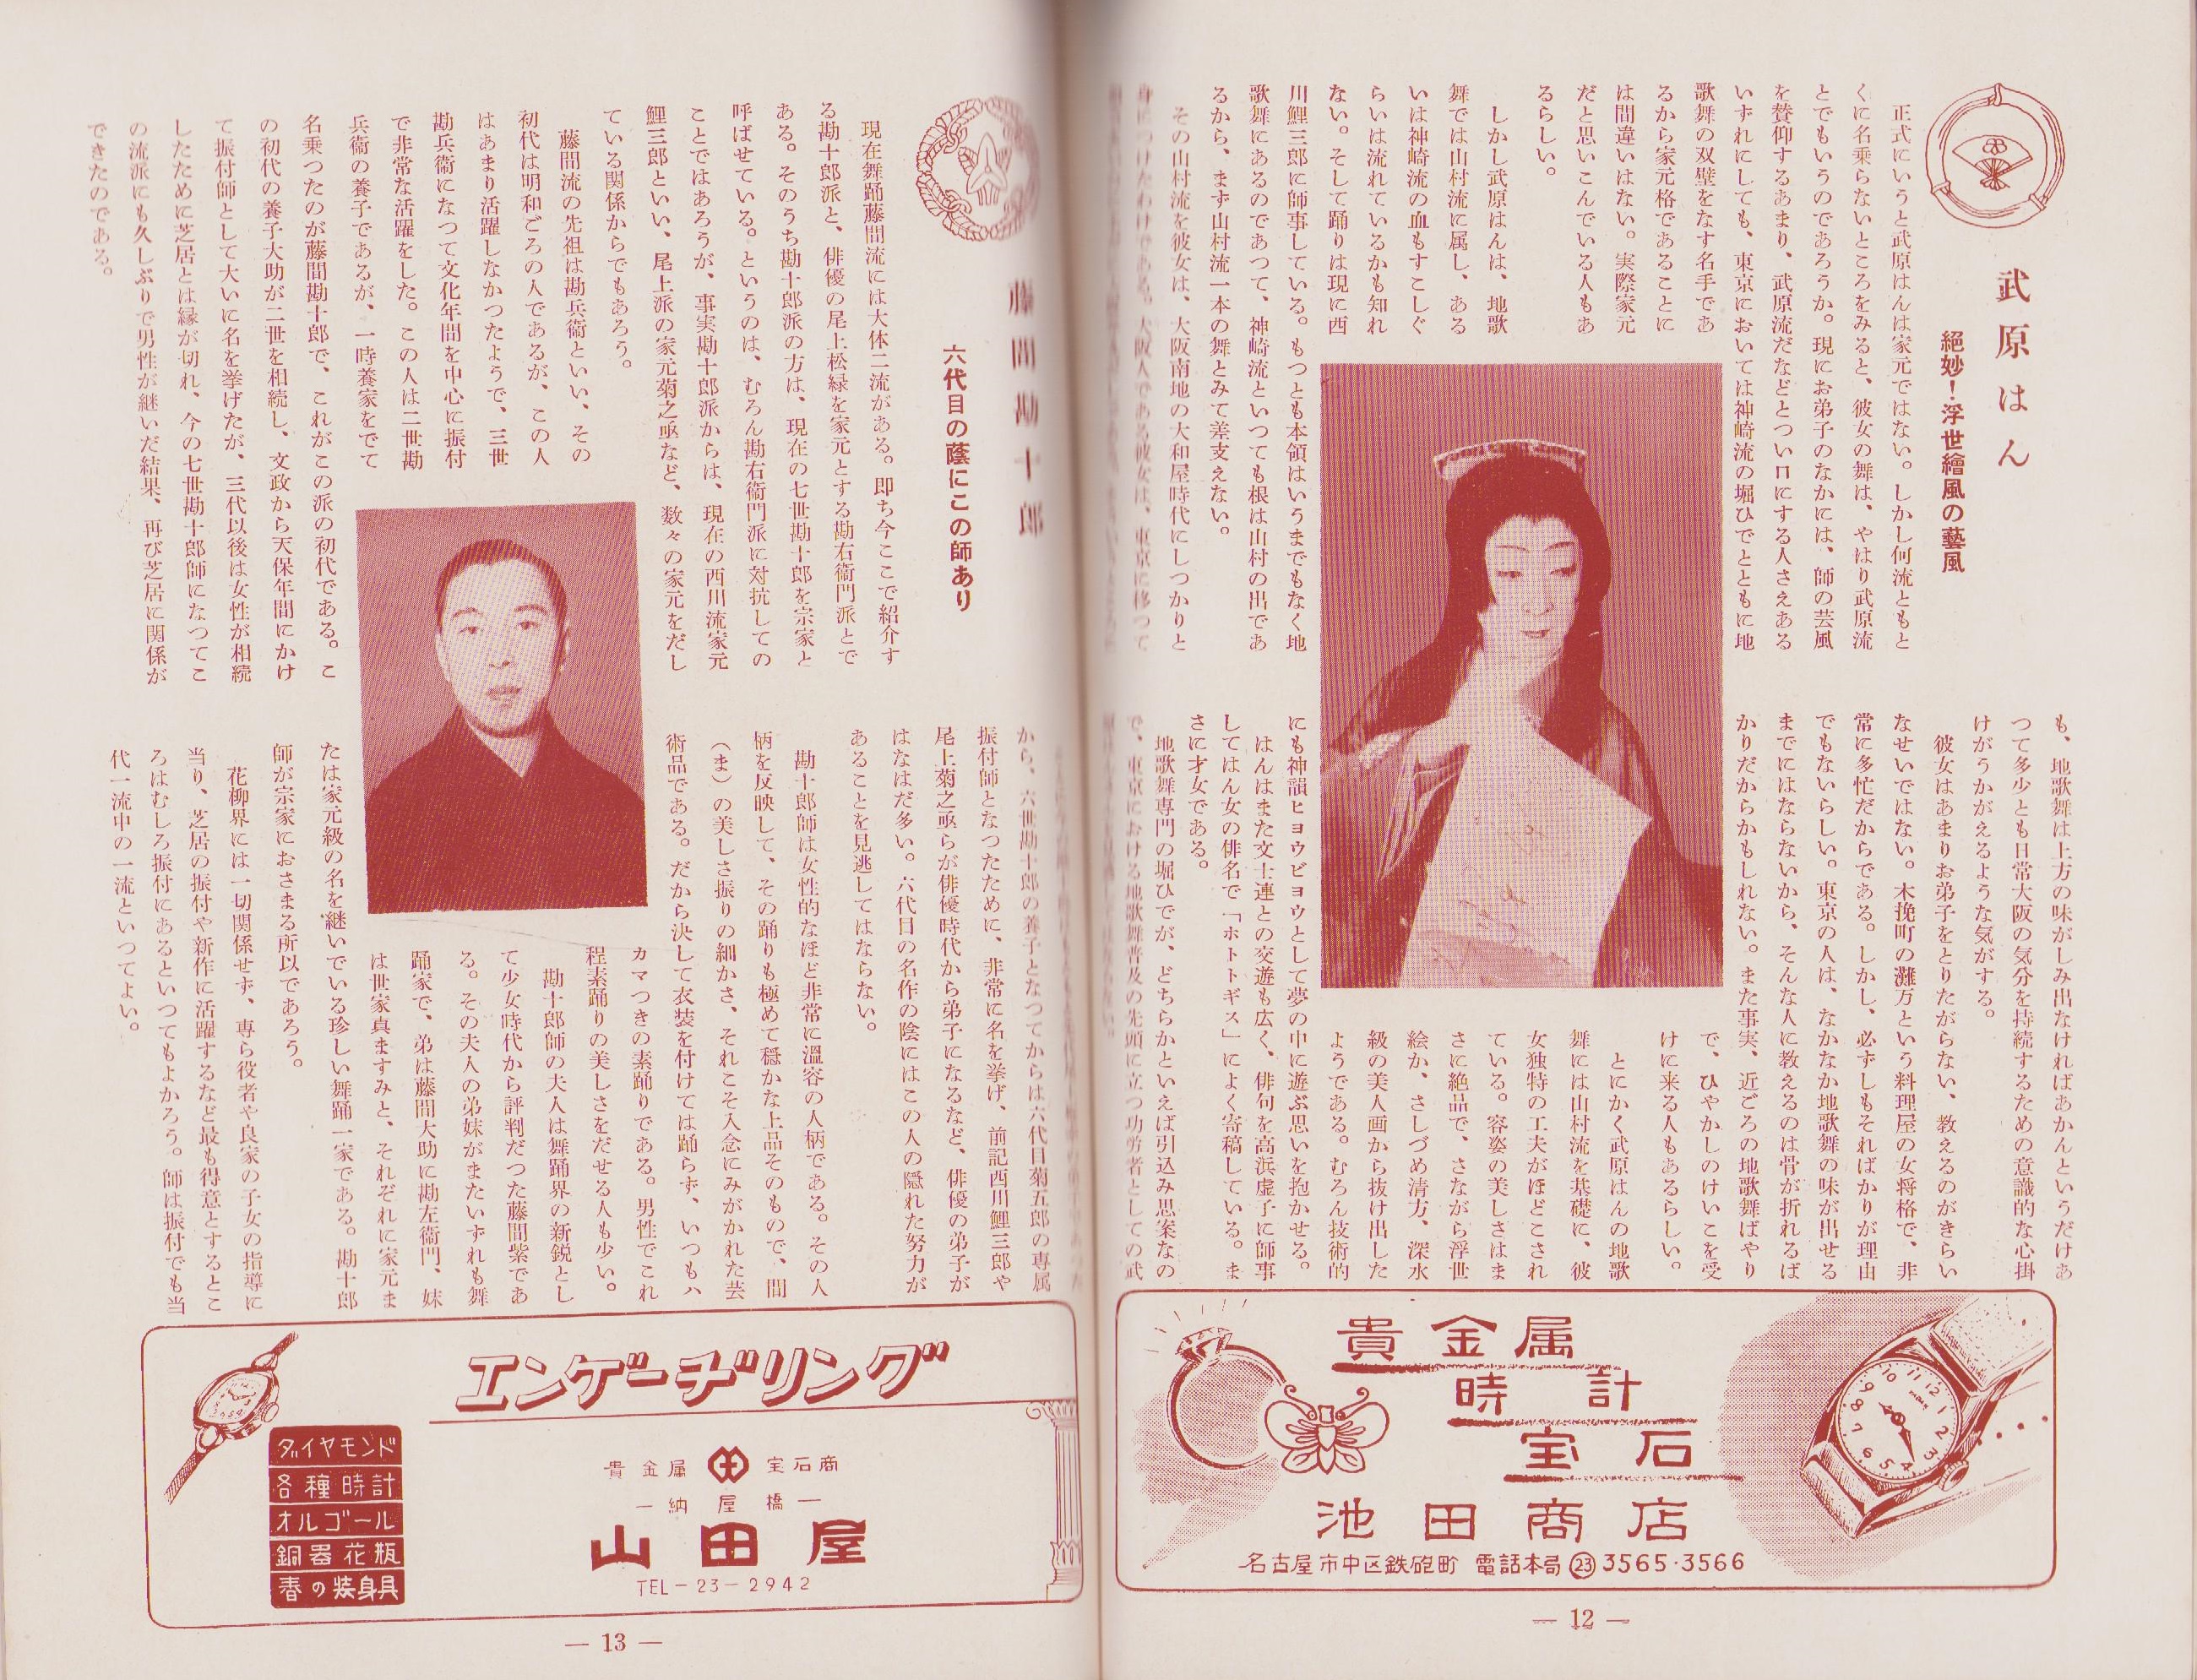 武原はん
絕妙！浮世繪風の藝風
正式にいうと武原はんは家元ではない。しかし何流ともと
くに名乗らないところをみると、彼女の舞は、やはり武原流
とでもいうのであろうか。現にお弟子のなかには、師の芸風
を賛仰するあまり、武原流だなどとつい口にする人さえある
いずれにしても、東京においては神崎流の堀ひでとともに地
歌舞の双璧をなす名手であ
るから家元格であることに
は間違いはない。実際家元
だと思いこんでいる人もあ
るらしい。
しかし武原はんは、地歌
舞では山村流に属し、ある
いは神崎流の血もすこしぐ
らいは流れているかも知れ
ない。そして踊りは現に西
川鯉三郎に師事している。もつとも本領はいうまでもなく地
歌舞にあるのであつて、神崎流といつても根は山村の出であ
るから、まず山村流一本の舞とみて差支えない。
その山村流を彼女は、大阪南地の大和屋時代にしつかりと
身につけたわけである。大阪人である彼女は、東京に移つて
も、地歌舞は上方の味がしみ出なければあかんというだけあ
つて多少とも日常大阪の気分を持続するための意識的な心掛
けがうかがえるような気がする。
彼女はあまりお弟子をとりたがらない、教えるのがきらい
なせいではない。木挽町の灘万という料理屋の女将格で、非
常に多忙だからである。しかし、必ずしもそればかりが理由
でもないらしい。東京の人は、なかなか地歌舞の味が出せる
までにはならないから、そんな人に教えるのは骨が折れるば
かりだからかもしれない。また事実、近ごろの地歌舞ばやり
で、ひやかしのけいこを受
けに来る人もあるらしい。
とにかく武原はんの地歌
舞には山村流を基礎に、彼
女独特の工夫がほどこされ
ている。容姿の美しさはま
さに絶品で、さながら浮世
絵か、さしづめ清方、深水
級の美人画から抜け出した
ようである。むろん技術的
にも神韻ヒヨウビヨウとして夢の中に遊ぶ思いを抱かせる。
はんはまた文士連との交遊も広く、俳句を高浜虚子に師事
してはん女の俳名で「ホトトギス」によく寄稿している。ま
さに才女である。
地歌舞専門の堀ひでが、どちらかといえば引込み思案なの
で、東京における地歌舞普及の先頭に立つ功労者としての武
貴金属
時計
宝石
池田商店
名古屋市中区鉄砲町 電話本局㉓3565·3566
— 12 —
藤間勘十郎
六代目の蔭にこの師あり
現在舞踊藤間流には大体二流がある。即ち今ここで紹介す
る勘十郎派と、俳優の尾上松緑を家元とする勘右衞門派とで
ある。そのうち勘十郎派の方は、現在の七世勘十郎を宗家と
呼ばせている。というのは、むろん勘右衞門派に対抗しての
ことではあろうが、事実勘十郎派からは、現在の西川流家元
鯉三郎といい、尾上派の家元菊之亟など、数々の家元をだし
ている関係からでもあろう。
藤間流の先祖は勘兵衞といい、その
初代は明和ごろの人であるが、この人
はあまり活躍しなかつたようで、三世
勘兵衞になつて文化年間を中心に振付
で非常な活躍をした。この人は二世勘
兵衞の養子であるが、一時養家をでて
名乗つたのが藤間勘十郎で、これがこの派の初代である。こ
の初代の養子大助が二世を相続し、文政から天保年間にかけ
て振付師として大いに名を挙げたが、三代以後は女性が相続
したために芝居とは縁が切れ、今の七世勘十郎師になつてこ
の流派にも久しぶりで男性が継いだ結果、再び芝居に関係が
できたのである。
から、六世勘十郎の養子となつてからは六代目菊五郎の専属
振付師となつたために、非常に名を挙げ、前記西川鯉三郎や
尾上菊之亟らが俳優時代から弟子になるなど、俳優の弟子が
はなはだ多い。六代目の名作の陰にはこの人の隠れた努力が
あることを見逃してはならない。
勘十郎師は女性的なほど非常に温容の人柄である。その人
柄を反映して、その踊りも極めて穏かな上品そのもので、間
（ま）の美しさ振りの細かさ、それこそ入念にみがかれた芸
術品である。だから決して衣装を付けては踊らず、いつもハ
カマつきの素踊りである。男性でこれ
程素踊りの美しさをだせる人も少い。
勘十郎師の夫人は舞踊界の新鋭とし
て少女時代から評判だつた藤間紫であ
る。その夫人の弟妹がまたいずれも舞
踊家で、弟は藤間大助に勘左衞門、妹
は世家真ますみと、それぞれに家元ま
たは家元級の名を継いでいる珍しい舞踊一家である。勘十郎
師が宗家におさまる所以であろう。
花柳界には一切関係せず、専ら役者や良家の子女の指導に
当り、芝居の振付や新作に活躍するなど最も得意とするとこ
ろはむしろ振付にあるといつてもよかろう。師は振付でも当
代一流中の一流といつてよい。
エンゲーヂリング
ダイヤモンド
各種時計
オルゴール
銅器花瓶
春の装身具
貴金属 宝石商
—納屋橋—
山田屋
TEL－23－2942
— 13 —